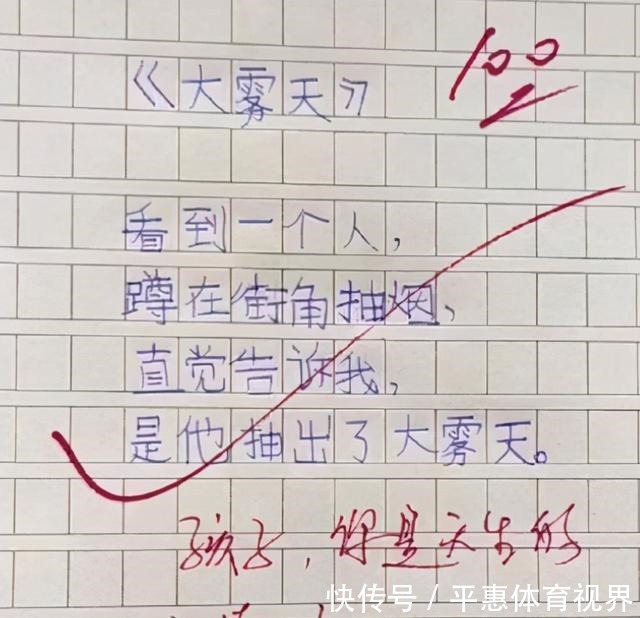 《大雾天》
100
看到一个人，
蹲在街角抽烟、
直觉告诉我，
是他抽出了大雾天。
孩子，你是天生的
快传号/平惠体育视界